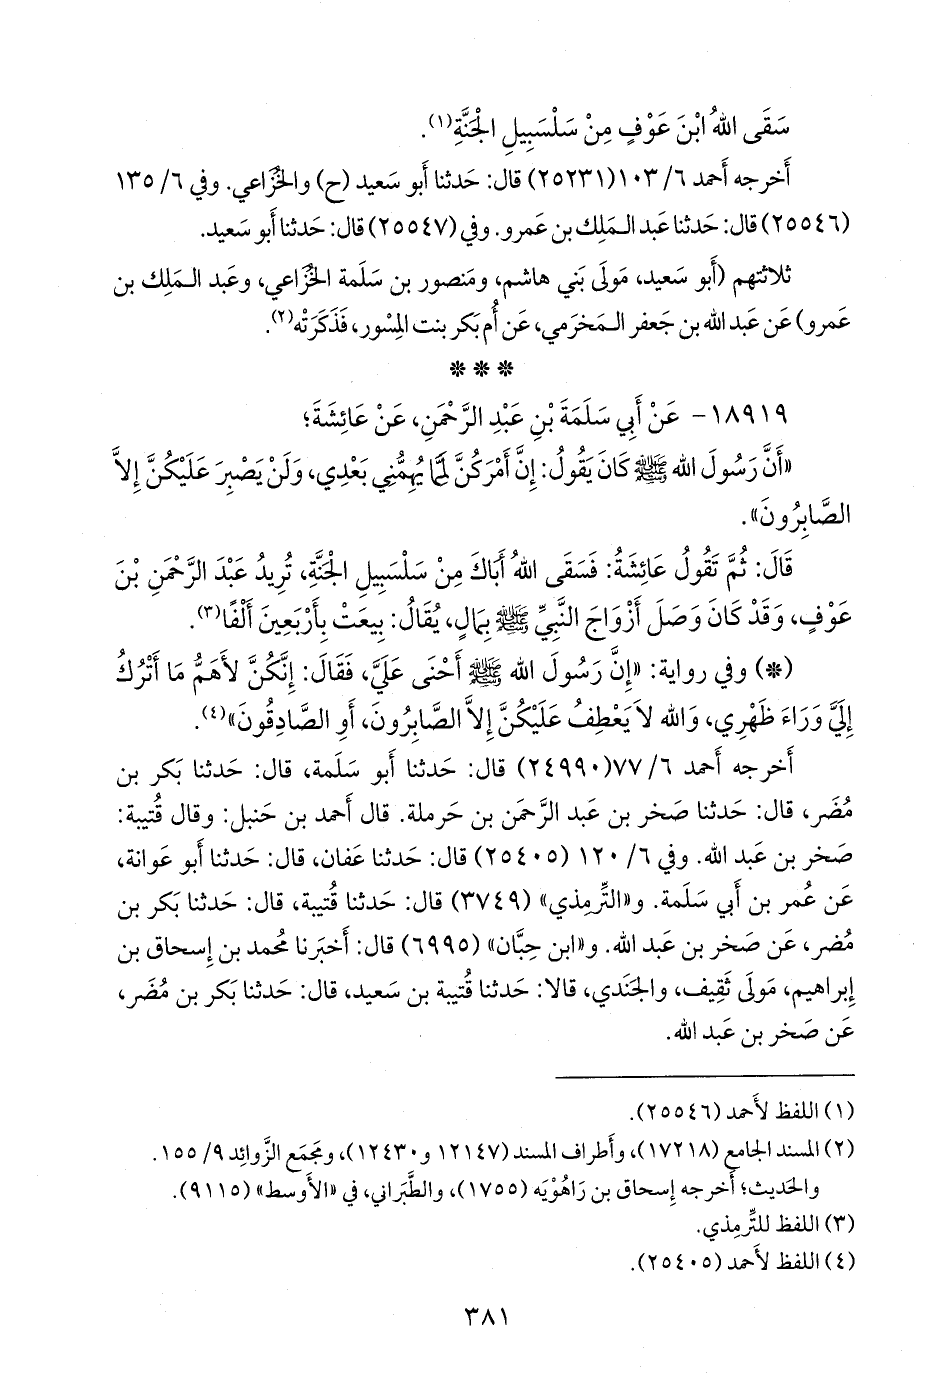 سَقَى اللهُ ابْنَ عَوْفٍ مِنْ سَلْسَبِيلِ الْجَنَّةِ(١).
أَخرجه أَحمد ٦/ ١٠٣(٢٥٢٣١) قال: حَدثنا أَبو سَعيد (ح) والخُزَاعي. وفي ٦/ ١٣٥
(٢٥٥٤٦) قال: حَدثنا عَبد الـمَلِك بن عَمرو. وفي (٢٥٥٤٧) قال: حَدثنا أَبو سَعيد.
ثلاثتهم (أَبو سَعيد، مَولَى بَني هاشم، ومَنصور بن سَلَمة الخُزاعي، وعَبد الـمَلِك بن
عَمرو) عَن عَبد الله بن جَعفر الـمَخرَمي، عَن أُم بَكر بنت المِسْور، فَذَكَرَتْه(٢).
* * *
١٨٩١٩- عَنْ أَبِي سَلَمَةَ بْنِ عَبْدِ الرَّحْمَنِ، عَنْ عَائِشَةَ؛
«أَنَّ رَسُولَ الله ﷺ كَانَ يَقُولُ: إِنَّ أَمْرَكُنَّ لَمَّا يُهِمُّنِي بَعْدِي، وَلَنْ يَصْبِرَ عَلَيْكُنَّ إِلاَّ
الصَّابِرُونَ».
قَالَ: ثُمَّ تَقُولُ عَائِشَةُ: فَسَقَى اللهُ أَبَاكَ مِنْ سَلْسَبِيلِ الْجَنَّةِ، تُرِيدُ عَبْدَ الرَّحْمَنِ بْنَ
عَوْفٍ، وَقَدْ كَانَ وَصَلَ أَزْوَاجَ النَّبِيِّ ﷺ بِمَالٍ، يُقَالُ: بِيعَتْ بِأَرْبَعِينَ أَلْفًا(٣).
(*) وفي رواية: «إِنَّ رَسُولَ الله ﷺ أَحْنَى عَلَيَّ، فَقَالَ: إِنَّكُنَّ لأَهَمُّ مَا أَتْرُكُ
إِلَيَّ وَرَاءَ ظَهْرِي، وَالله لاَ يَعْطِفُ عَلَيْكُنَّ إِلاَّ الصَّابِرُونَ، أَوِ الصَّادِقُونَ»(٤).
أَخرجه أَحمد ٦/ ٧٧(٢٤٩٩٠) قال: حَدثنا أَبو سَلَمة، قال: حَدثنا بَكر بن
مُضَر، قال: حَدثنا صَخر بن عَبد الرَّحمَن بن حَرملة. قال أَحمد بن حَنبل: وقال قُتيبة:
صَخر بن عَبد الله. وفي ٦/ ١٢٠ (٢٥٤٠٥) قال: حَدثنا عَفان، قال: حَدثنا أَبو عَوانة،
عَن عُمر بن أَبي سَلَمة. و«التِّرمِذي» (٣٧٤٩) قال: حَدثنا قُتيبة، قال: حَدثنا بَكر بن
مُضر، عَن صَخر بن عَبد الله. و«ابن حِبَّان» (٦٩٩٥) قال: أَخبَرنا مُحمد بن إِسحاق بن
إِبراهيم، مَولَى ثَقِيف، والجَنَدي، قالا: حَدثنا قُتيبة بن سَعيد، قال: حَدثنا بَكر بن مُضَر،
عَن صَخر بن عَبد الله.
(١) اللفظ لأَحمد (٢٥٥٤٦).
(٢) المسند الجامع (١٧٢١٨)، وأَطراف المسند (١٢١٤٧ و١٢٤٣٠)، ومجَمَع الزَّوائِد ٩/ ١٥٥.
والحَديث؛ أَخرجه إِسحاق بن رَاهُوْيَه (١٧٥٥)، والطَّبَراني، في «الأَوسط» (٩١١٥).
(٣) اللفظ للتِّرمِذي.
(٤) اللفظ لأَحمد (٢٥٤٠٥).
٣٨١